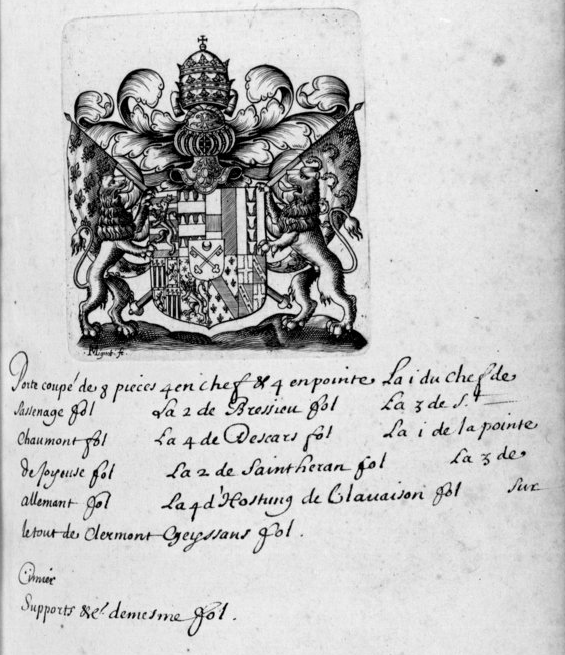 Mignot. fe.
Porte coupé de 8 pieces 4 en chef & 4 en pointe La 1 du chef de
Sassenage fol La 2 de Bressieu fol La 3 de S.t
Chaumont fol La 4 de Descars fol La 1 de la pointe
de Joyeuse fol La 2 de Saintheran fol La 3 de
allemant fol La 4 d'Hostung de Clavaison fol Sur
le tout de Clermont Geyssans fol.
Cimier
Supports &c. demesme fol.